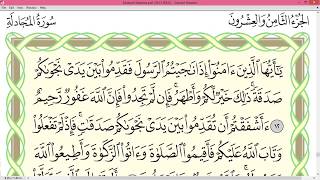 الجزء الثامن والعشرون
سورة المجادلة
يَٰٓأَيُّهَا ٱلَّذِينَ ءَامَنُوٓا۟ إِذَا نَٰجَيْتُمُ ٱلرَّسُولَ فَقَدِّمُوا۟ بَيْنَ يَدَىْ نَجْوَىٰكُمْ
صَدَقَةً ۚ ذَٰلِكَ خَيْرٌ لَّكُمْ وَأَطْهَرُ ۚ فَإِن لَّمْ تَجِدُوا۟ فَإِنَّ ٱللَّهَ غَفُورٌ رَّحِيمٌ
١٢ ءَأَشْفَقْتُمْ أَن تُقَدِّمُوا۟ بَيْنَ يَدَىْ نَجْوَىٰكُمْ صَدَقَٰتٍ ۚ فَإِذْ لَمْ تَفْعَلُوا۟
وَتَابَ ٱللَّهُ عَلَيْكُمْ فَأَقِيمُوا۟ ٱلصَّلَوٰةَ وَءَاتُوا۟ ٱلزَّكَوٰةَ وَأَطِيعُوا۟ ٱللَّهَ